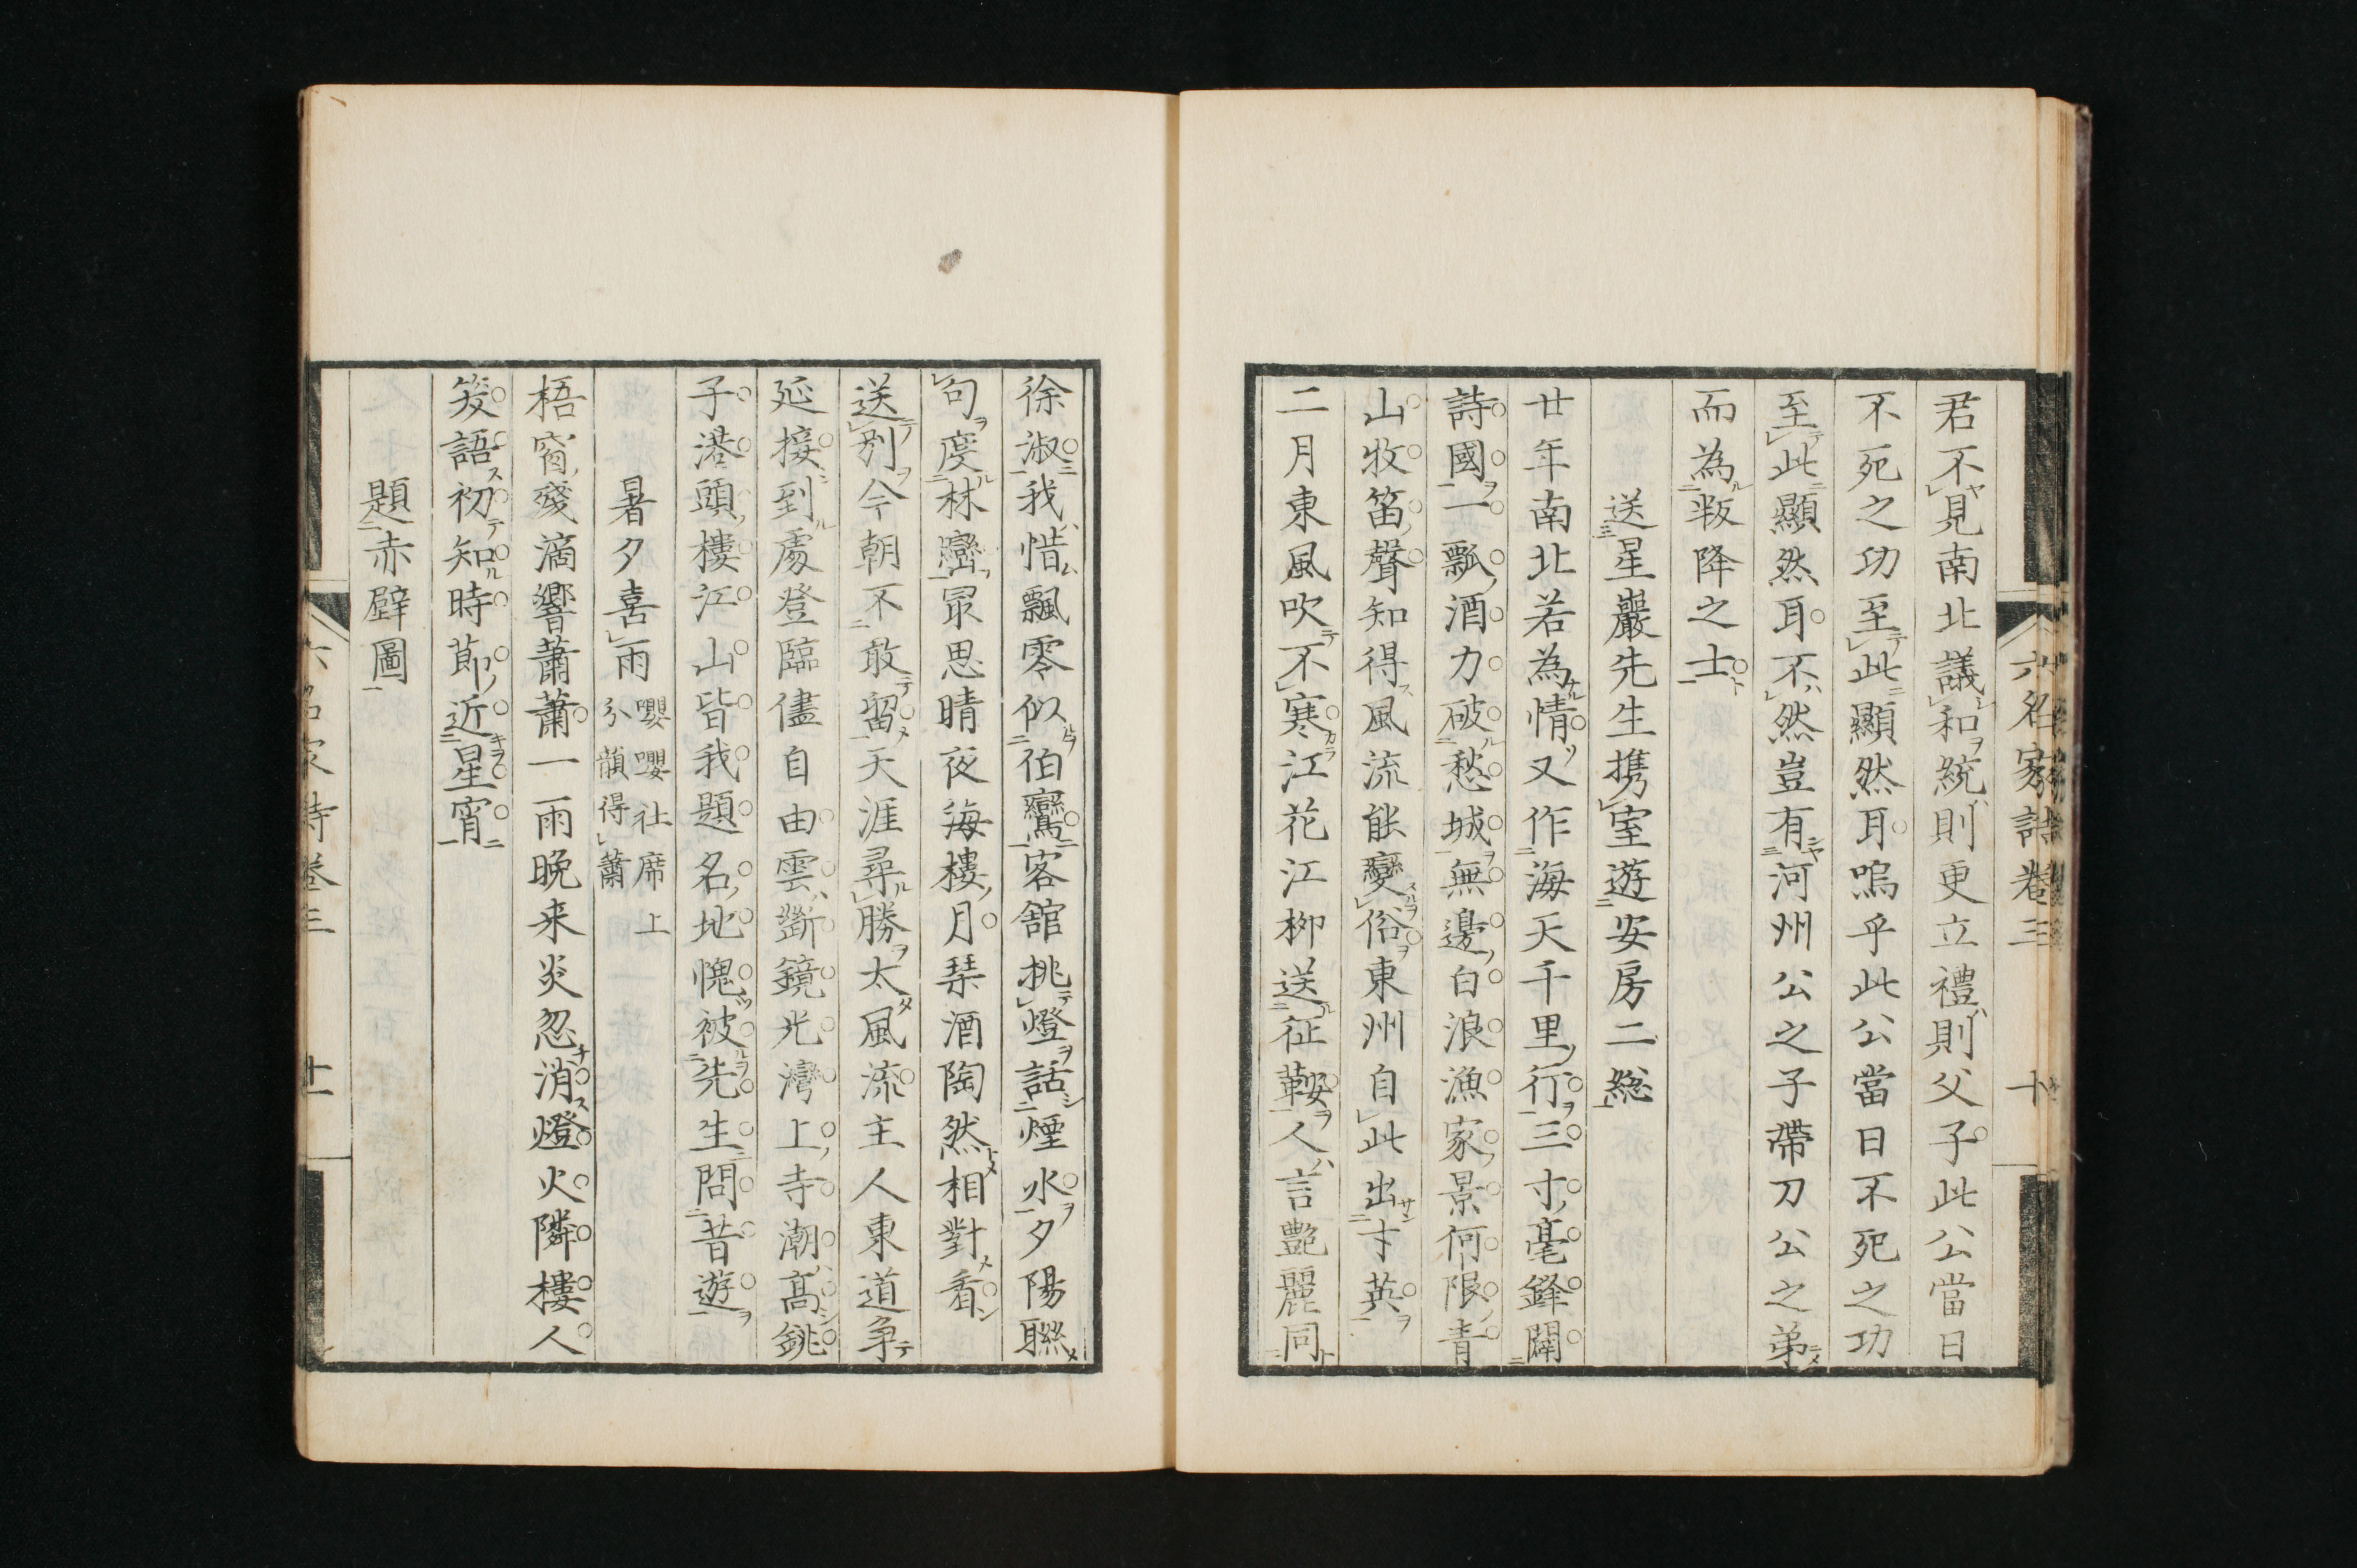 六名家詩卷三 十
君不見南北議和統則更立禮則父子此公當日
不死之功至此顯然耳嗚乎此公當日不死之功
至此顯然耳不然豈有河州公之子帶刀公之弟
而為叛降之士
送星巖先生携室遊安房二総
廿年南北若為情又作海天千里行三寸毫鋒闢
詩國一瓢酒力破愁城無邊白浪漁家景何限青
山牧笛聲知得風流能變俗東州自此出才英
二月東風吹不寒江花江柳送征鞍人言艷麗同
徐淑我惜飄零似伯鸞客舘挑燈話煙水夕陽聯
句度林巒最思晴夜海樓月琹酒陶然相對看
送別今朝不敢留天涯尋勝太風流主人東道争
延接到處登臨儘自由雲斷鏡光灣上寺潮高銚
子港頭樓江山皆我題名地愧被先生問昔遊
暑夕喜雨 嚶嚶社席上分韻得蕭
梧窗殘滴響蕭蕭一雨晚来炎忽消燈火隣樓人
笑語初知時節近星宵
題赤壁圖
六名家詩卷三 十一